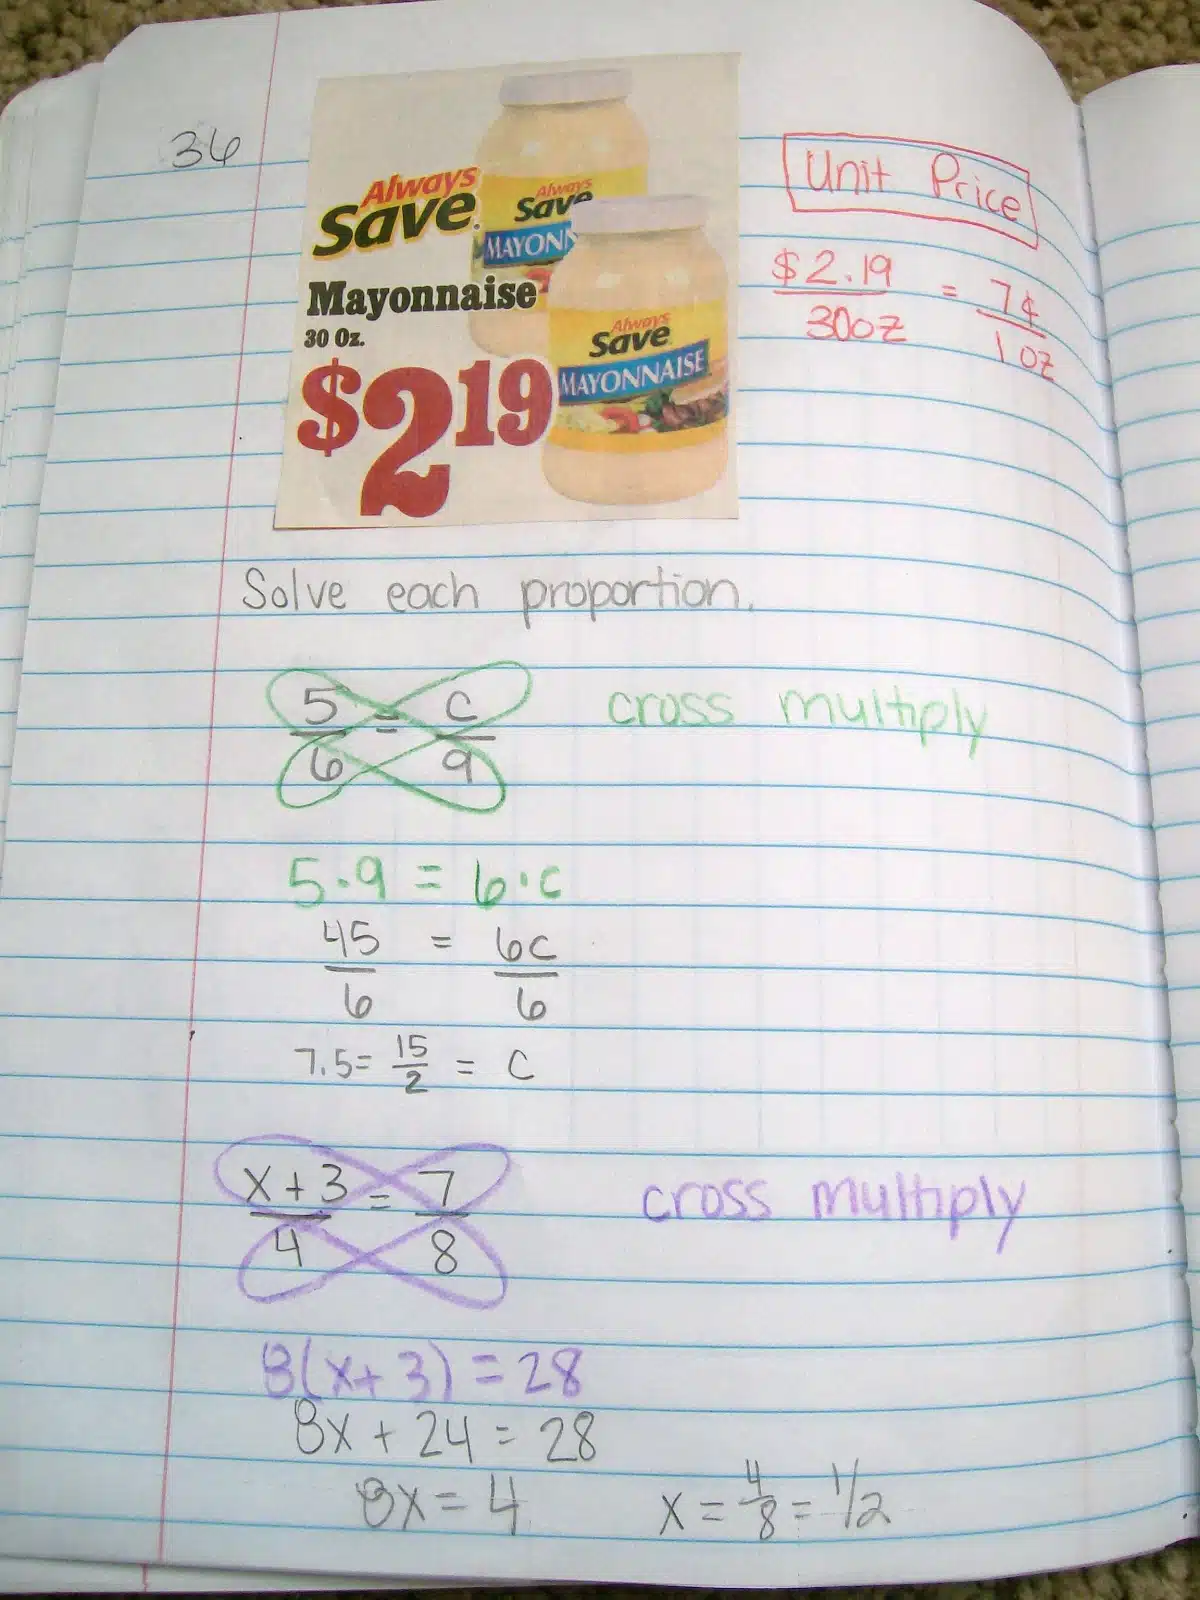 36
Always
Save
Mayonnaise
30 Oz.
$2 19
Always
Save
MAYONN
Always
Save
MAYONNAISE
Unit Price
$2.19 = 7¢
30oz 1 oz
Solve each proportion.
5 = c
6 9
cross multiply
5·9 = 6·c
45 = 6c
6 6
7.5 = 15/2 = c
x+3 = 7
4 8
cross multiply
8(x+3) = 28
8x + 24 = 28
8x = 4 x = 4/8 = 1/2